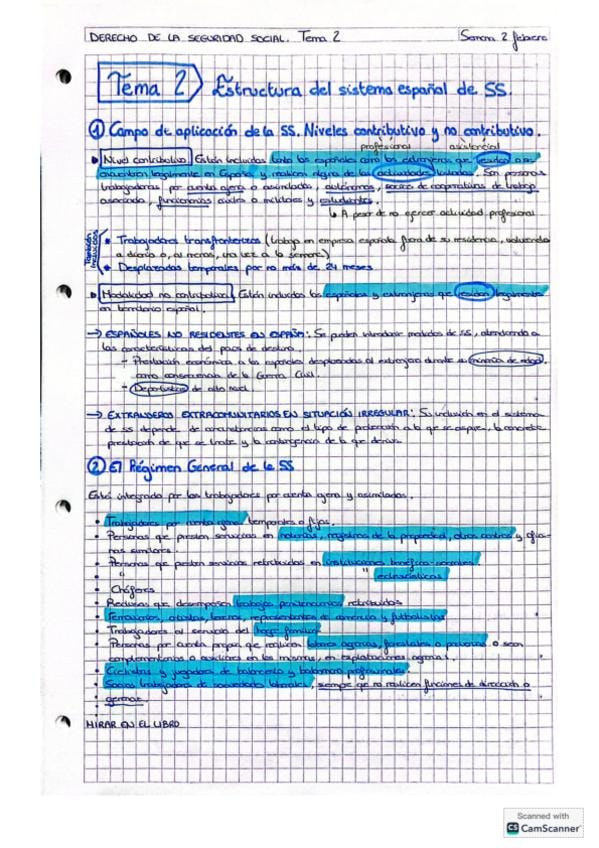 DERECHO DE LA SEGURIDAD SOCIAL. Tema 2 Semana 2 febrero
Tema 2 Estructura del sistema español de SS.
① Campo de aplicación de la SS. Niveles contributivo y no contributivo.
profesional asistencial
Nivel contributivo Están incluidos tanto los españoles como los extranjeros que residan o se
encuentren legalmente en España y realicen alguna de las actividades Son personas
trabajadoras por cuenta ajena o asimiladas, autónomos, socios de cooperativas de trabajo
asociado, funcionarios civiles o militares y estudiantes.
↳ A pesar de no ejercer actividad profesional
También incluidos
* Trabajadores transfronterizos (trabaja en empresa española fuera de su residencia, volviendo
a diario o, al menos, una vez a la semana)
* Desplazados temporales por no más de 24 meses.
Modalidad no contributiva Están incluidos los españoles y extranjeros que residan legalmente
en territorio español.
→ ESPAÑOLES NO RESIDENTES EN ESPAÑA: Se pueden introducir medidas de SS, atendiendo a
las características del país de destino.
- Prestación económica a los españoles desplazados al extranjero durante su minoría de edad,
como consecuencia de la Guerra Civil.
- Deportistas de alto nivel.
→ EXTRANJEROS EXTRACOMUNITARIOS EN SITUACIÓN IRREGULAR: Su inclusión en el sistema
de SS depende de circunstancias como el tipo de protección a la que se aspire, la concreta
prestación de que se trate y la contingencia de la que derive.
② El Régimen General de la SS
Está integrado por los trabajadores por cuenta ajena y asimilados.
• Trabajadores por cuenta ajena temporales o fijos.
• Personas que prestan servicios en notarías, registros de la propiedad, otros centros y ofici-
nas similares.
• Personas que prestan servicios retribuidos en instituciones benéfico-sociales
• " " eclesiásticas
• Chóferes
• Reclusos que desempeñan trabajos penitenciarios retribuidos
• Ferroviarios, artistas, toreros, representantes de comercio y futbolistas
• Trabajadores al servicio del hogar familiar
• Personas por cuenta propia que realicen labores agrarias, forestales o pecuarias o sean
complementarias o auxiliares en las mismas, en explotaciones agrarias.
• Ciclistas y jugadores de baloncesto y balonmano profesionales.
• Socios trabajadores de sociedades laborales, siempre que no realicen funciones de dirección o
gerencia.
MIRAR EN EL LIBRO
Scanned with
CS CamScanner